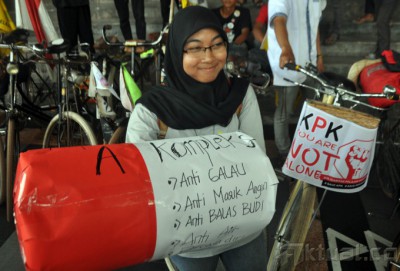 A Kompleks
Anti GALAU
Anti Masuk Angin
Anti BALAS BUDI
Anti
KPK
YOU ARE
NOT
ALONE